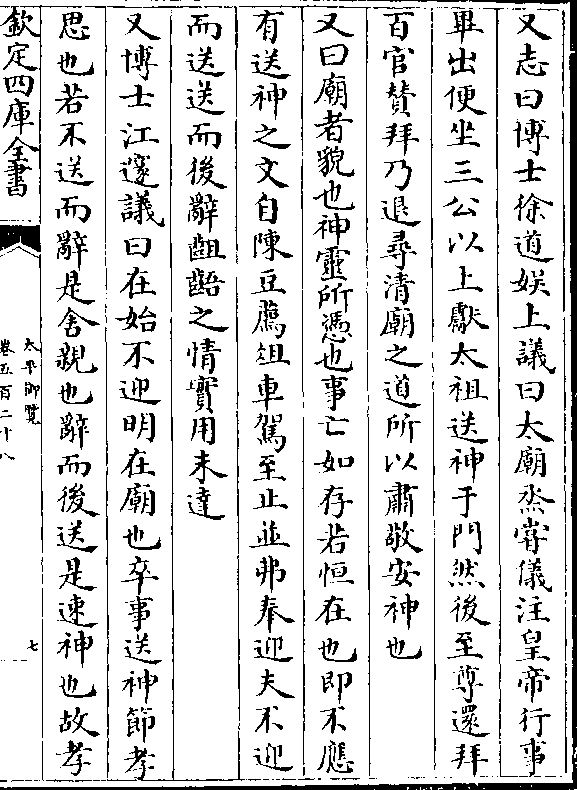 又志曰博士徐道娛上議曰太廟烝甞儀注皇帝行事
畢出便坐三公以上獻太祖送神于門然後至尊還拜
百官賛拜乃退尋清廟之道所以肅敬安神也
又曰廟者貌也神靈所憑也事亡如存若恒在也即不應
有送神之文自陳豆薦俎車駕至止並弗奉迎夫不迎
而送送而後辭齟齬之情實用未達
又博士江邃議曰在始不迎明在廟也卒事送神節孝
思也若不送而辭是舍親也辭而後送是速神也故孝
欽定四庫全書
太平御覽
卷五百二十八
七